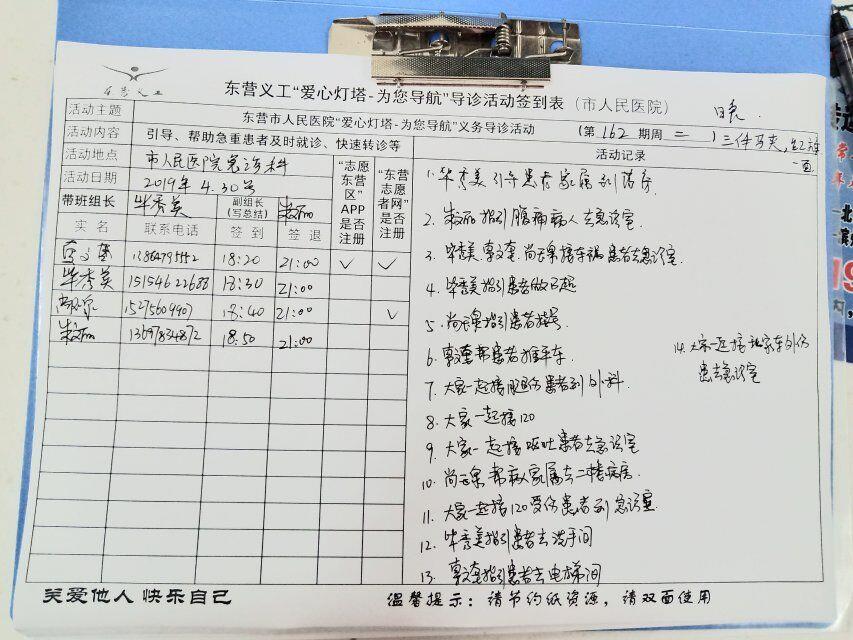 东营义工
东营义工“爱心灯塔-为您导航”导诊活动签到表（市人民医院）
活动主题 东营市人民医院“爱心灯塔-为您导航”义务导诊活动 （第 162 期周 二 ）三件马夹，红
活动内容 引导、帮助急重患者及时就诊、快速转诊等
活动地点 市人民医院急诊科
活动日期 2019年4.30号
带班组长 毕秀美 副组长（写总结）
“志愿东营区”APP是否注册
“东营志愿者网”是否注册
实名 联系电话 签到 签退
18:20 21:00 ✓ ✓
毕秀美 15154622688 18:30 21:00
15275609907 18:40 21:00 ✓
13697834872 18:50 21:00
活动记录
1. 毕秀美引导患者家属到药房
2. 指引腹痛病人去急诊室
3. 毕秀美 接车祸患者去急诊室
4. 毕秀美指引患者做B超
5. 指引患者挂号
6. 帮患者推平车
7. 大家一起接腿伤患者到外科
8. 大家一起接120
9. 大家一起接呕吐患者去急诊室
10. 帮病人家属去二楼病房
11. 大家一起接120受伤患者到急诊室
12. 毕秀美指引患者去洗手间
13. 指引患者去电梯间
14. 大家一起接私家车外伤
患者去急诊室
关爱他人 快乐自己
温馨提示：请节约纸资源，请双面使用